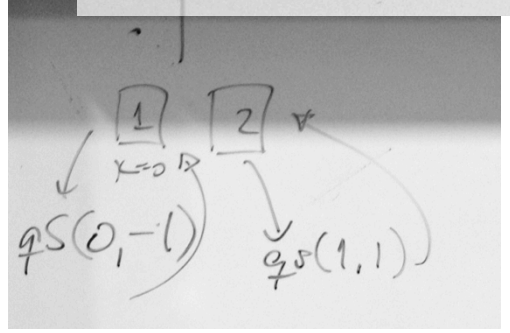 1 2
x=0
qS(0,-1) qs(1,1)